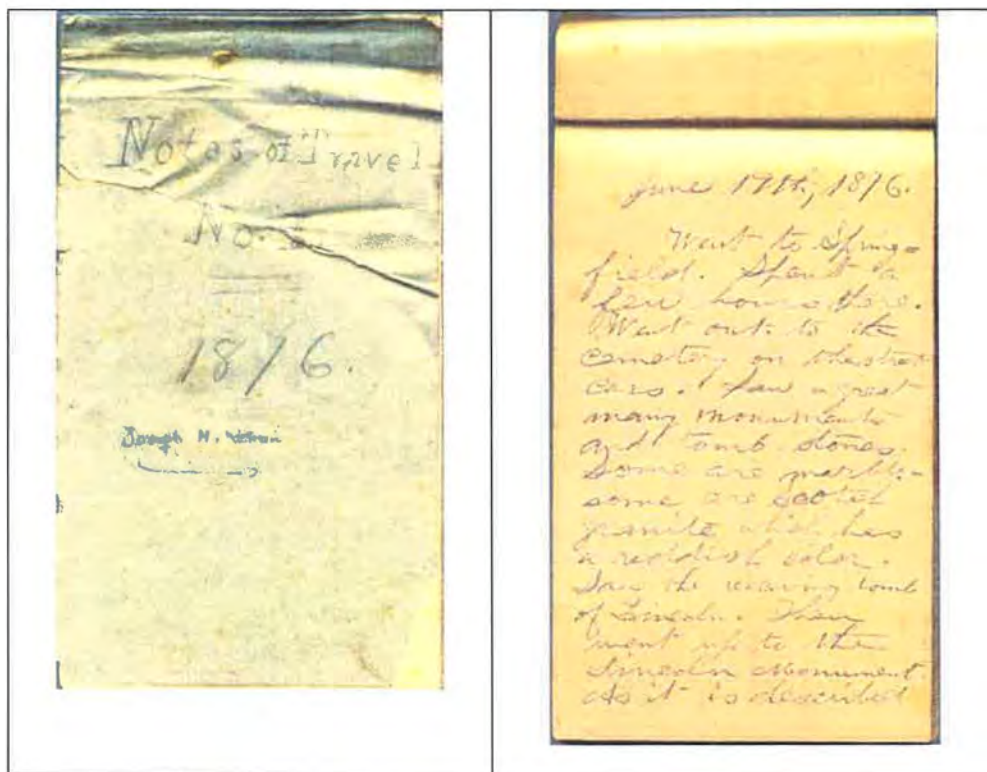 Notes of Travel
No.
1876.
Joseph H.
June 17th, 1876.
Went to Spring=
field. Spent a
few hours there.
Went out to the
cemetery on the street
cars. Saw a great
many monuments
and tomb stones.
Some are marble-
some are Scotch
granite which has
a reddish color.
Saw the receiving tomb
of Lincoln. Then
went up to the
Lincoln Monument.
As it is described